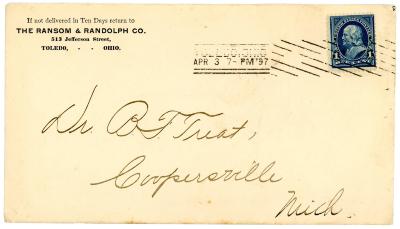 If not delivered in Ten Days return to
THE RANSOM & RANDOLPH CO.
513 Jefferson Street,
TOLEDO, - - OHIO.
TOLEDO, OHIO
APR 3 7-PM '97
1 1
Dr. B F Treat,
Coopersville
Mich.